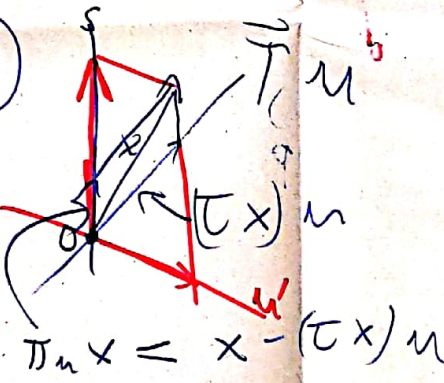 S
T u
x
(τx) u
O
u'
π_u x = x - (τx) u